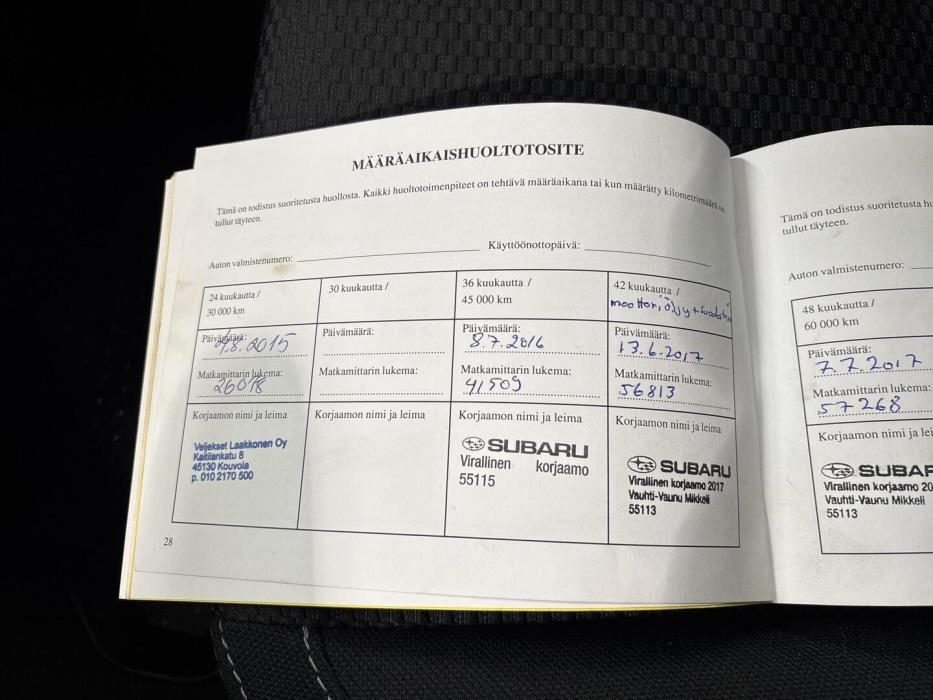 MÄÄRÄAIKAISHUOLTOTOSITE
Tämä on todistus suoritetusta huollosta. Kaikki huoltotoimenpiteet on tehtävä määräaikana tai kun määrätty kilometrimäärä on
tullut täyteen.
Auton valmistenumero:
Käyttöönottopäivä:
24 kuukautta /
30 000 km
30 kuukautta /
36 kuukautta /
45 000 km
42 kuukautta /
moottoriöljy + suodatin
Päivämäärä:
4.8.2015
Päivämäärä:
Päivämäärä:
8.7.2016
Päivämäärä:
13.6.2017
Matkamittarin lukema:
26018
Matkamittarin lukema:
Matkamittarin lukema:
41509
Matkamittarin lukema:
56813
Korjaamon nimi ja leima
Veljekset Laakkonen Oy
Kaitilankatu 8
45130 Kouvola
p. 010 2170 500
Korjaamon nimi ja leima
Korjaamon nimi ja leima
SUBARU
Virallinen korjaamo
55115
Korjaamon nimi ja leima
SUBARU
Virallinen korjaamo 2017
Vauhti-Vaunu Mikkeli
55113
28
Tämä on todistus suoritetusta hu
tullut täyteen.
Auton valmistenumero:
48 kuukautta /
60 000 km
Päivämäärä:
7.7.2017
Matkamittarin lukema:
57268
Korjaamon nimi ja lei
SUBAR
Virallinen korjaamo 20
Vauhti-Vaunu Mikkeli
55113